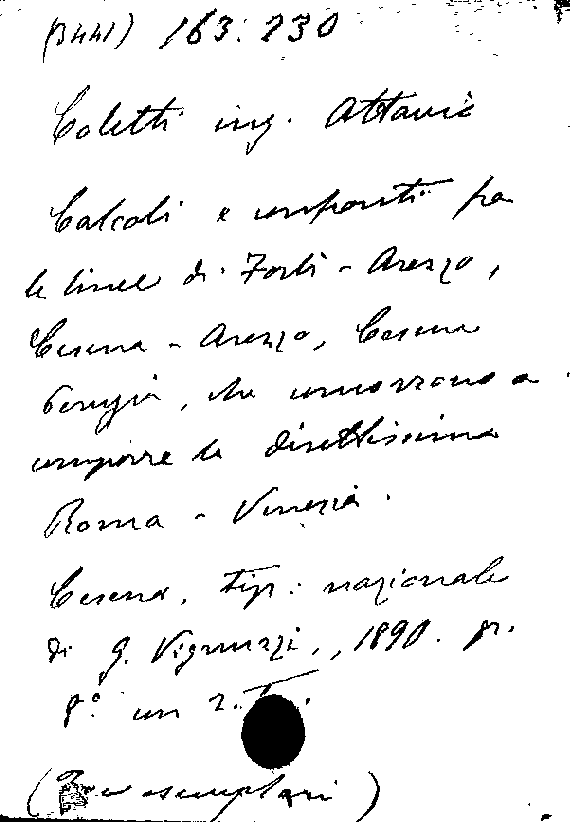 (B441) 163:230
Coletti ing. Attavio
Calcoli e confronti fra
le linee di Forlì - Arezzo,
Cesena - Arezzo, Cesena
Perugia, che concorrono a
comporre la direttissima
Roma - Venezia.
Cesena, tip: nazionale
di G. Vignuzzi, 1890. gr.
8° con 2. T.
( esemplari)